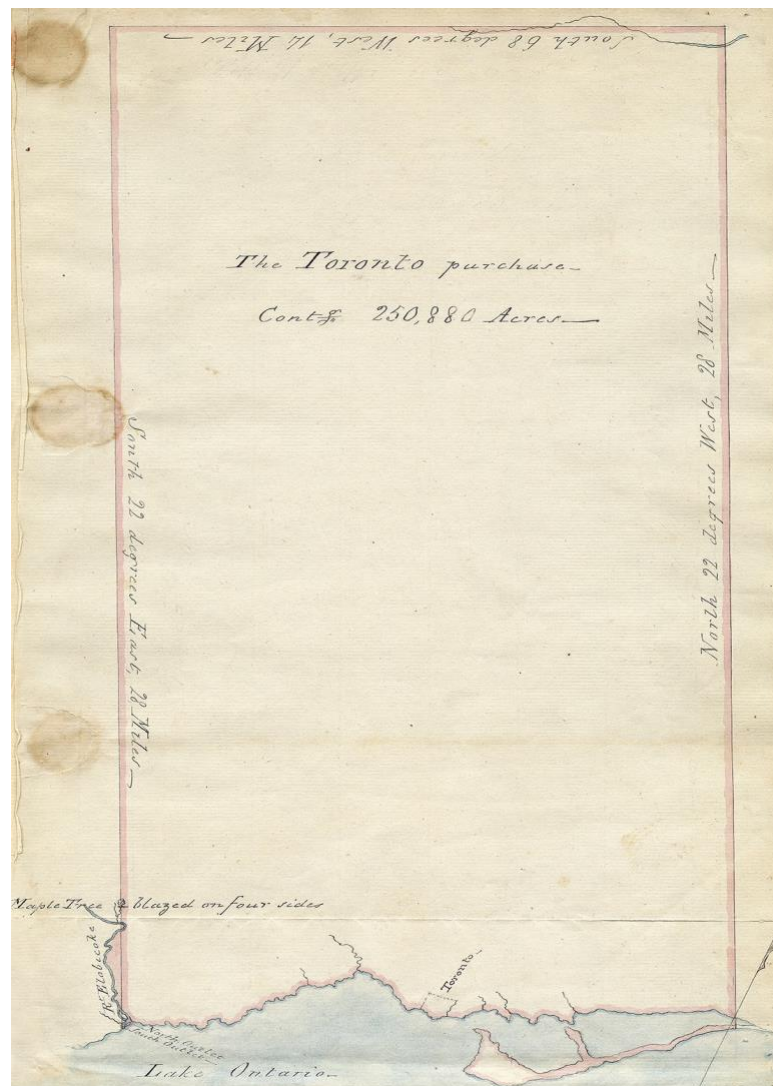 South 68 degrees West, 14 Miles
The Toronto purchase
Contg 250,880 Acres
North 22 degrees West, 28 Miles
South 22 degrees East, 28 Miles
Maple Tree blazed on four sides
Rr Etobicoke
Toronto
Lake Ontario